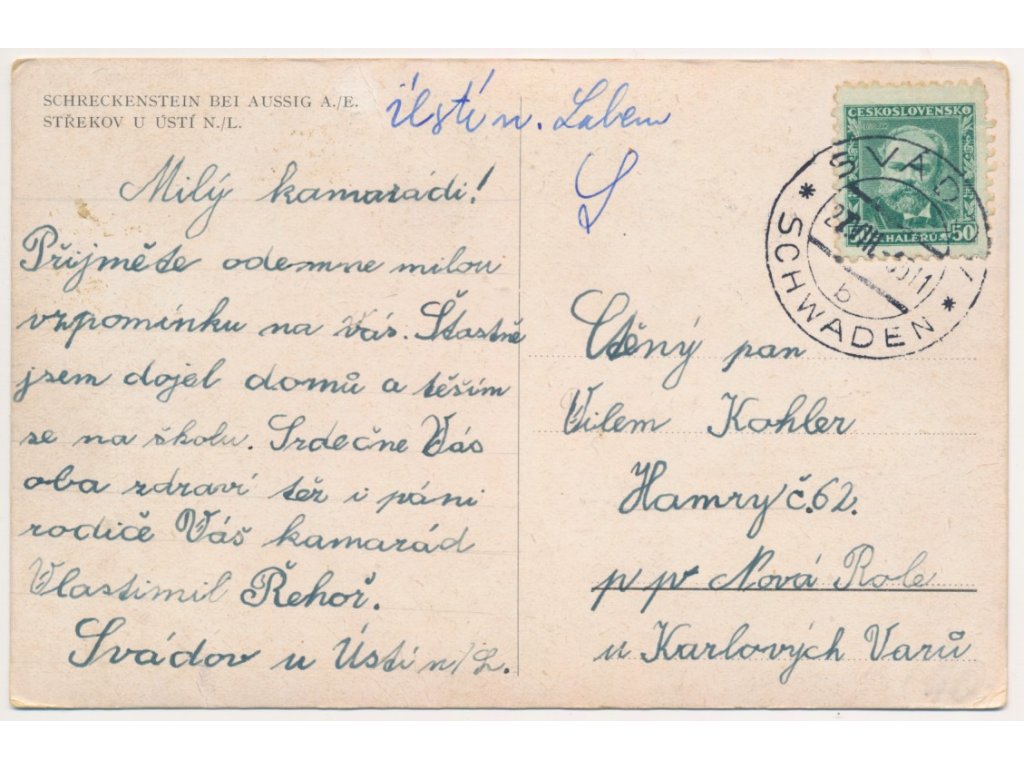 SCHRECKENSTEIN BEI AUSSIG A./E.
STŘEKOV U ÚSTÍ N./L.
Ústí n. Labem
Milý kamarádi!
Přijměte odemne milou
vzpomínku na vás. Štastně
jsem dojel domů a těším
se na školu. Srdečne Vás
oba zdraví též i páni
rodiče Váš kamarád
Vlastimil Řehoř.
Svádov u Ústí n/L.
ČESKOSLOVENSKO
50 HALÉŘŮ 50
SVÁDOV
SCHWADEN
b
Ctěný pan
Vilem Kohler
Hamry č.62.
p p Nová Role
u Karlových Varů